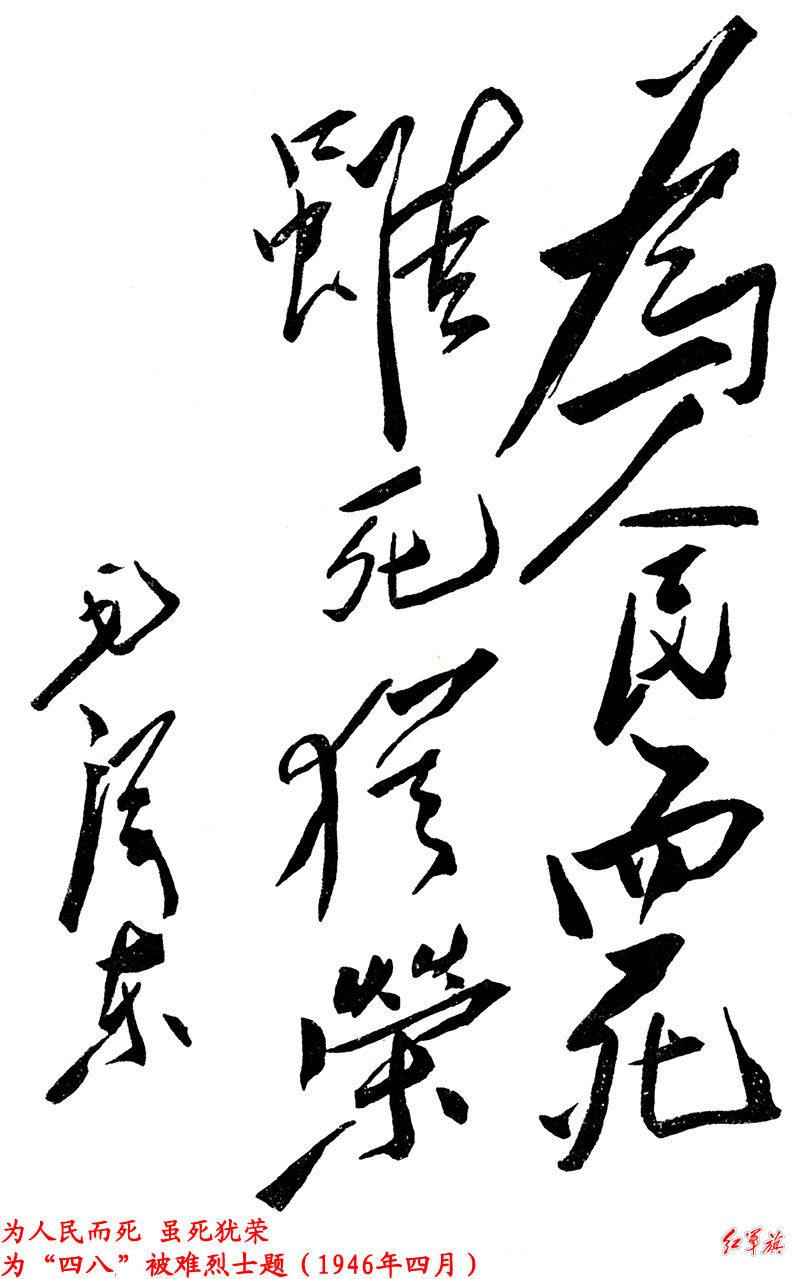 為人民而死
雖死猶榮
毛澤东
为人民而死 虽死犹荣
为“四八”被难烈士题（1946年四月）
红军旗